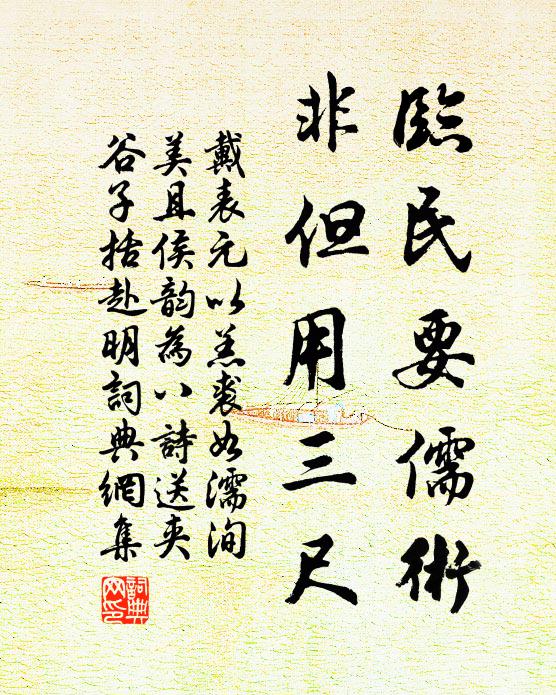 臨民要儒術
非但用三尺
戴表元以羔裘如濡洵
美且侯韵為八詩送夾
谷子括赴明詞典網集
詞典網印